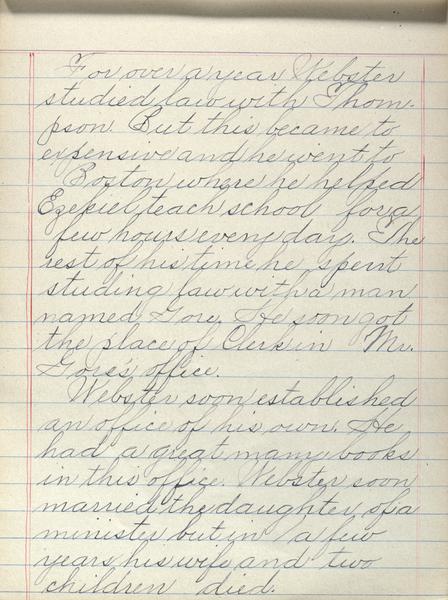 For over a year Webster
studied law with Thom-
pson. But this became to
expensive and he went to
Boston where he helped
Ezekiel teach school for a
few hours every day. The
rest of his time he spent
studing law with a man
named Gore. He soon got
the place of Clerk in Mr.
Gore's office.
Webster soon established
an office of his own. He
had a great many books
in this office. Webster soon
married the daughter of a
minister but in a few
years his wife and two
children died.